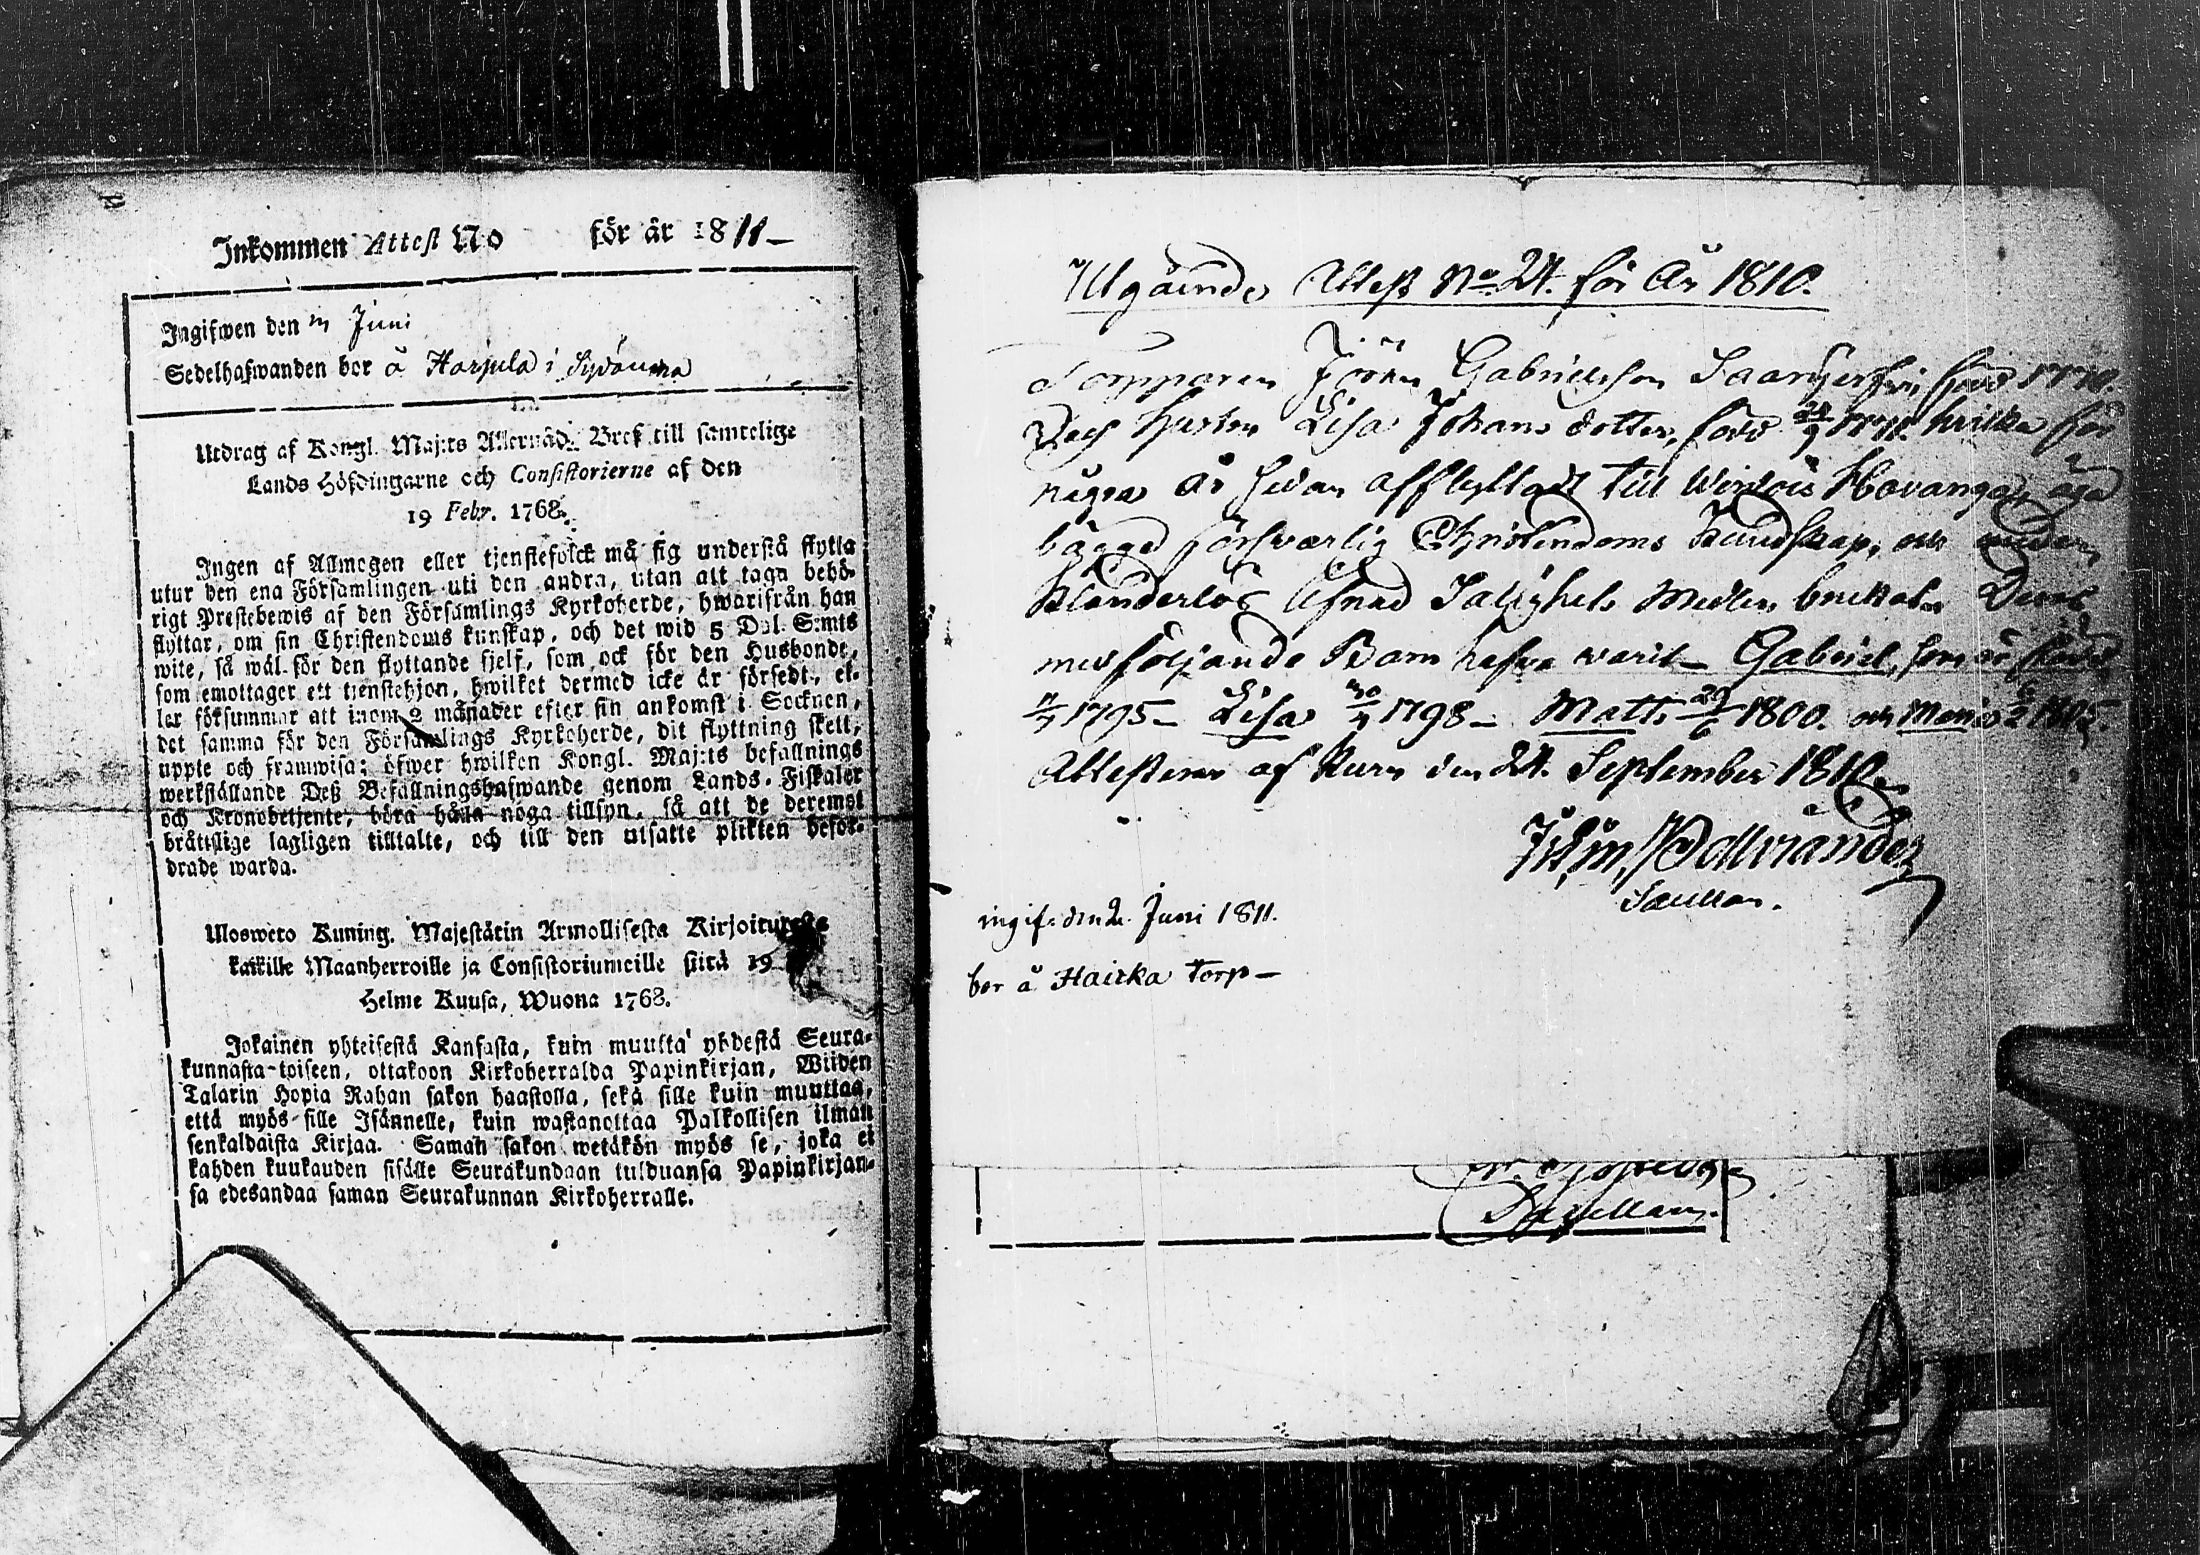 Inkommen Attest No för år 1811
Ingifwen den Juni
Sedelhafwanden bor å Harjula i Sydänmaa
Utdrag af Kongl. Maj:ts Allernåd. Bref till samtelige
Lands Höfdingarne och Consistorierne af den
19 Febr. 1768.
Ingen af Allmogen eller tjenstefolck må sig understå flytta
utur den ena Församlingen uti den andra, utan att taga behö-
rigt Prestebewis af den Församlings Kyrkoherde, hwarifrån han
flyttar, om sin Christendoms kunskap, och det wid 5 Dal. S:mts
wite, så wäl för den flyttande sjelf, som ock för den Husbonde,
som emottager ett tienstehjon, hwilket dermed icke är försedt, el-
ler försummar att inom 2 månader efter sin ankomst i Socknen,
det samma för den Församlings Kyrkoherde, dit flyttning skett,
uppte och framwisa; öfwer hwilken Kongl. Maj:ts befallnings
werkställande Deß Befallningshafwande genom Lands-Fiskaler
och Kronobetjente, böra hålla noga tillsyn, så att de deremot
bråttslige lagligen tilltalte, och till den utsatte plikten befor-
drade warda.
Ulosweto Kuning. Majestätin Armollisesta Kirjoituresta
kaikille Maanherroille ja Consistoriumeille siitä 19
Helme Kuusa, Wuona 1768.
Jokainen yhteisestä Kansasta, kuin muutta yhdestä Seura-
kunnasta toiseen, ottakoon Kirkoherralda Papinkirjan, Wiiden
Talarin Hopia Rahan sakon haastolla, sekä sille kuin muuttaa,
että myös sille Isännelle, kuin wastanottaa Palkollisen ilman
senkaldaista Kirjaa. Saman sakon wetäkön myös se, joka ei
kahden kuukauden sisälle Seurakundaan tulduansa Papinkirjan-
sa edesandaa saman Seurakunnan Kirkoherralle.
Utgående Attest No 24. för År 1810.
Torpparen Jöran Gabrielsson Saarijerfvi, född 1770.
Och Hustru Lisa Johans dotter, född 1771. hvilka för
några år sedan afflyttadt till Wirdois Havanga, äga
bägge försvarlig Christendoms Kundskap, och under
Klanderlös lefnad Salighets Medlen bruckat. Deras
medföljande Barn hafva varit Gabriel, som är född
1795 – Lisa 1798 – Matts 29/6 1800. och Maria
Attesterar af Kuru den 24. September 1810.
ingif. den 2. Juni 1811.
bor å Haicka Torp –